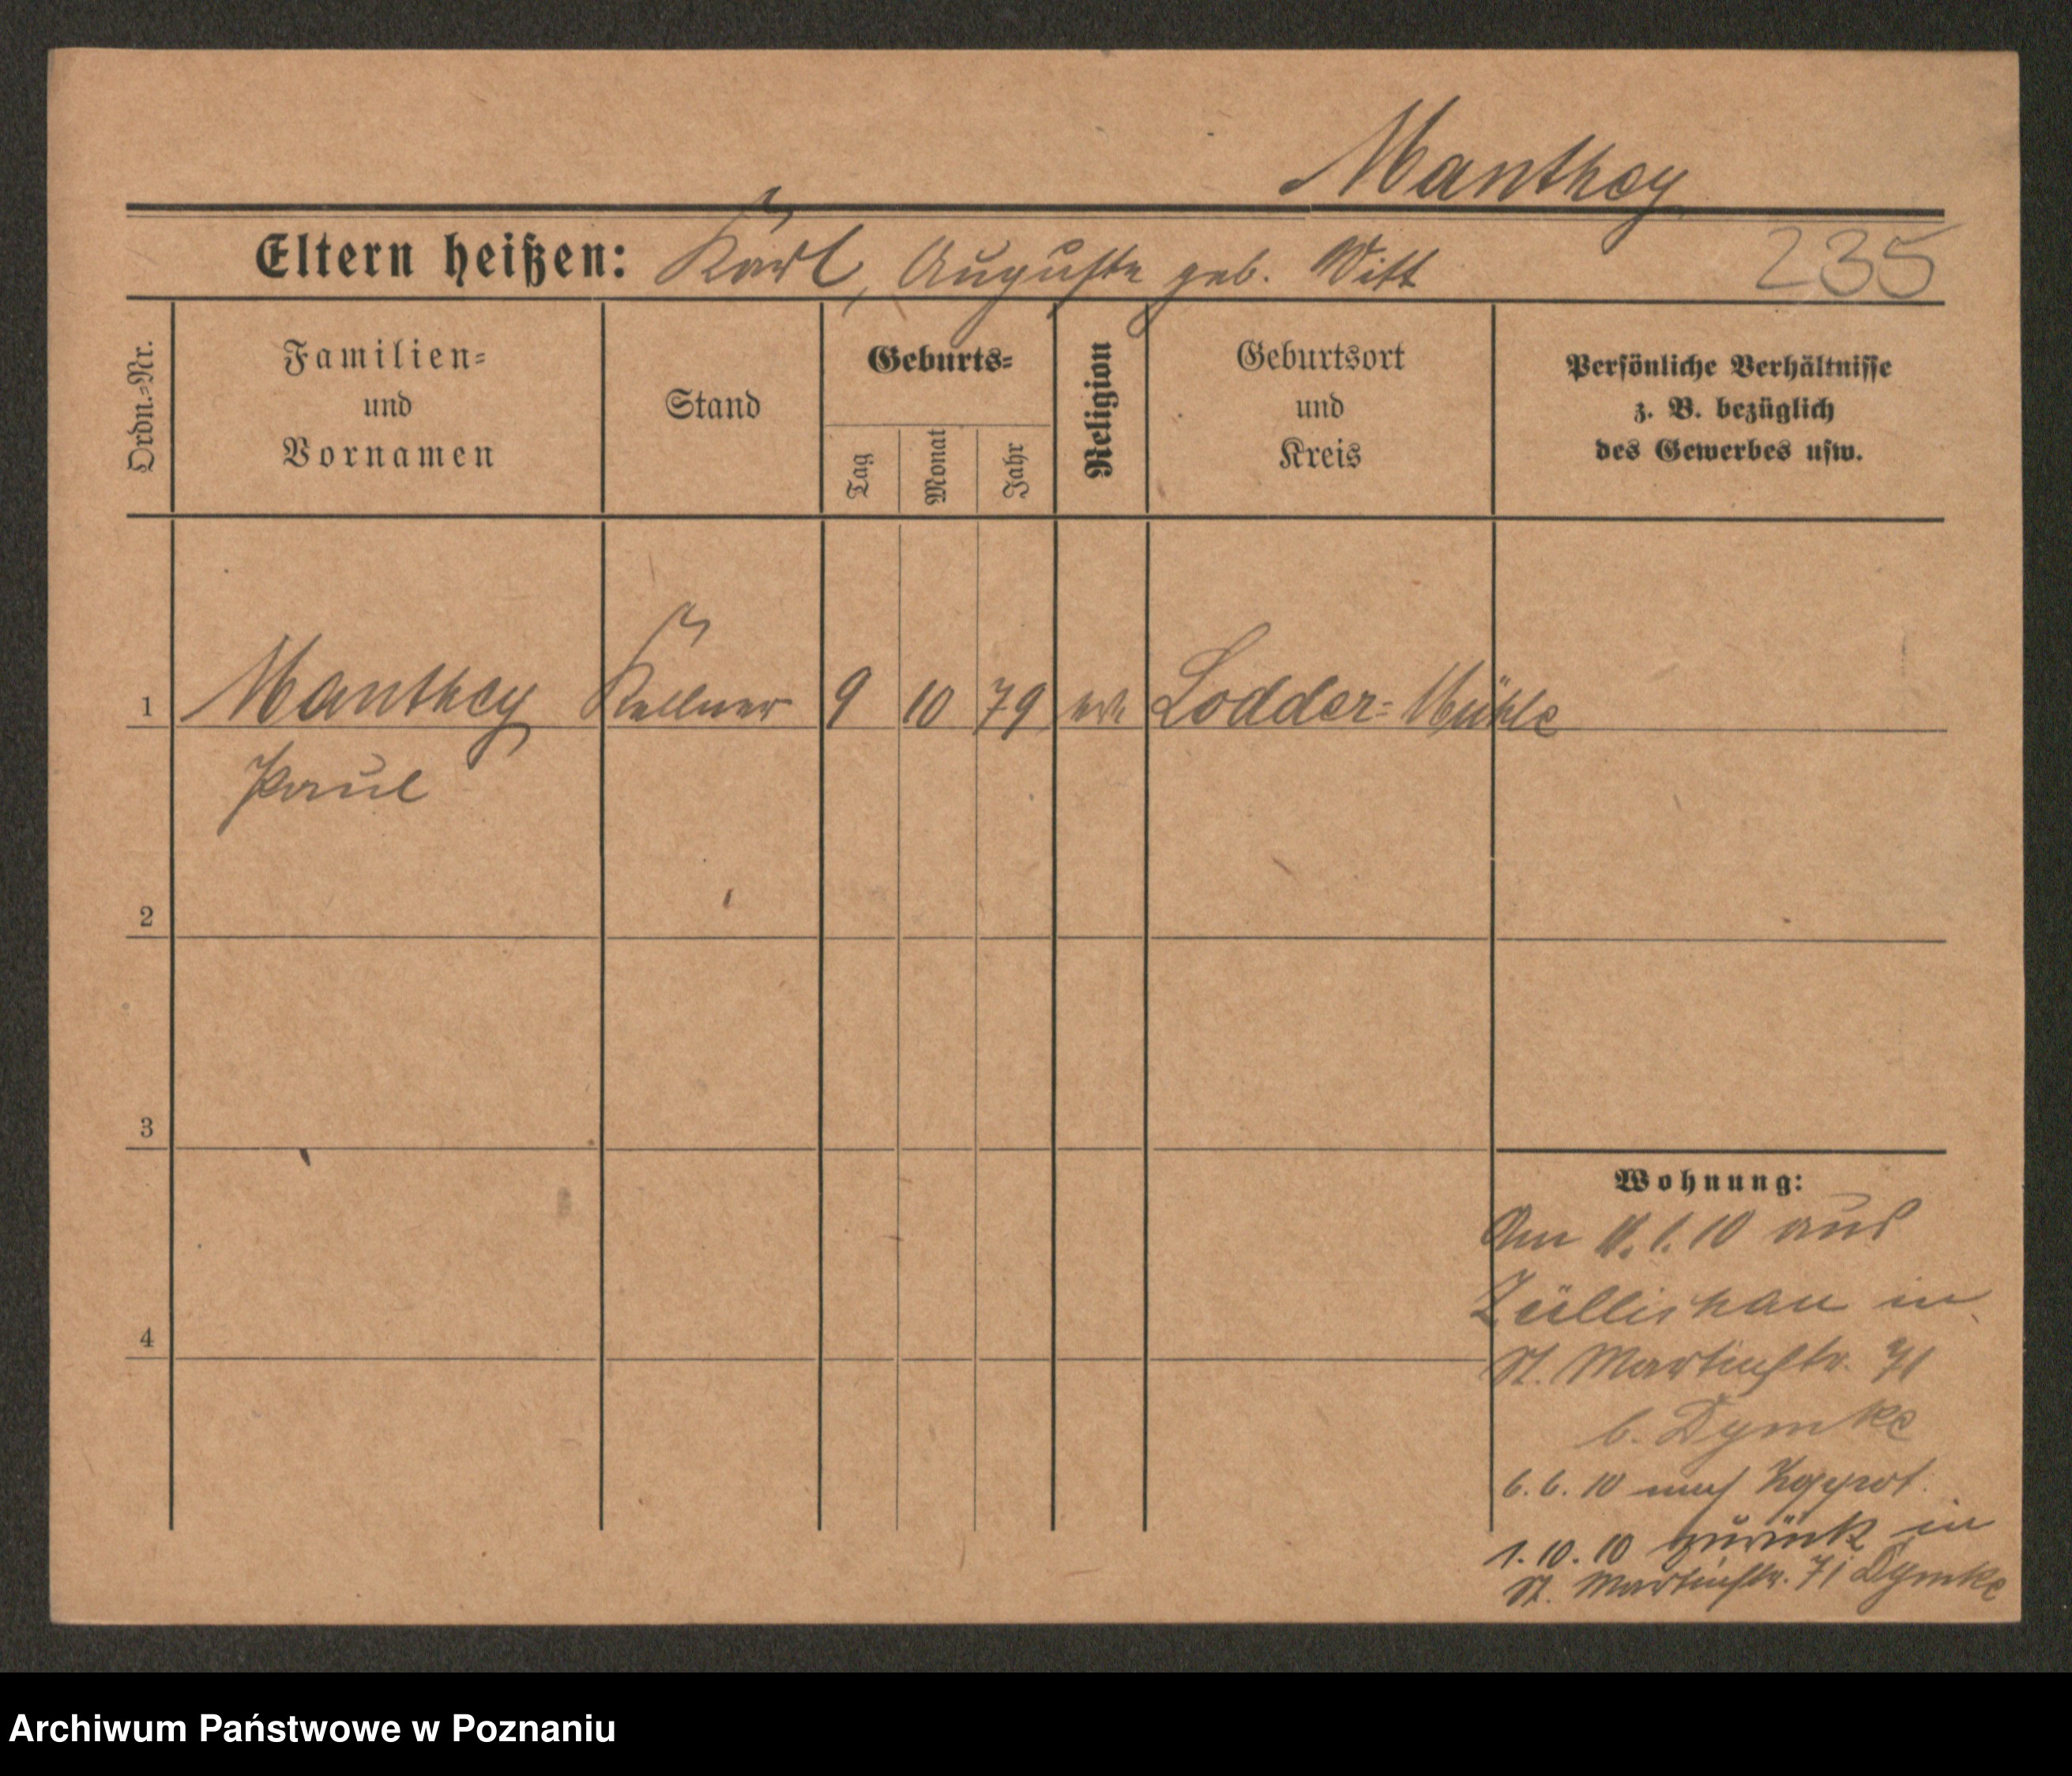 Manthey
Eltern heißen: Karl, Auguste geb. Witt
235
Ordn.-Nr.
Familien-
und
Vornamen
Stand
Geburts-
Tag
Monat
Jahr
Religion
Geburtsort
und
Kreis
Persönliche Verhältnisse
z. B. bezüglich
des Gewerbes usw.
1 Manthey Kellner 9 10 79 ev. Lodder-Mühle
Paul
2
3
4
Wohnung:
Am 11.1.10 aus
Züllichau in
St. Martinstr. 71
b. Dymke
6.6.10 nach
1.10.10 zurück in
St. Martinstr. 71 Dymke
Archiwum Państwowe w Poznaniu